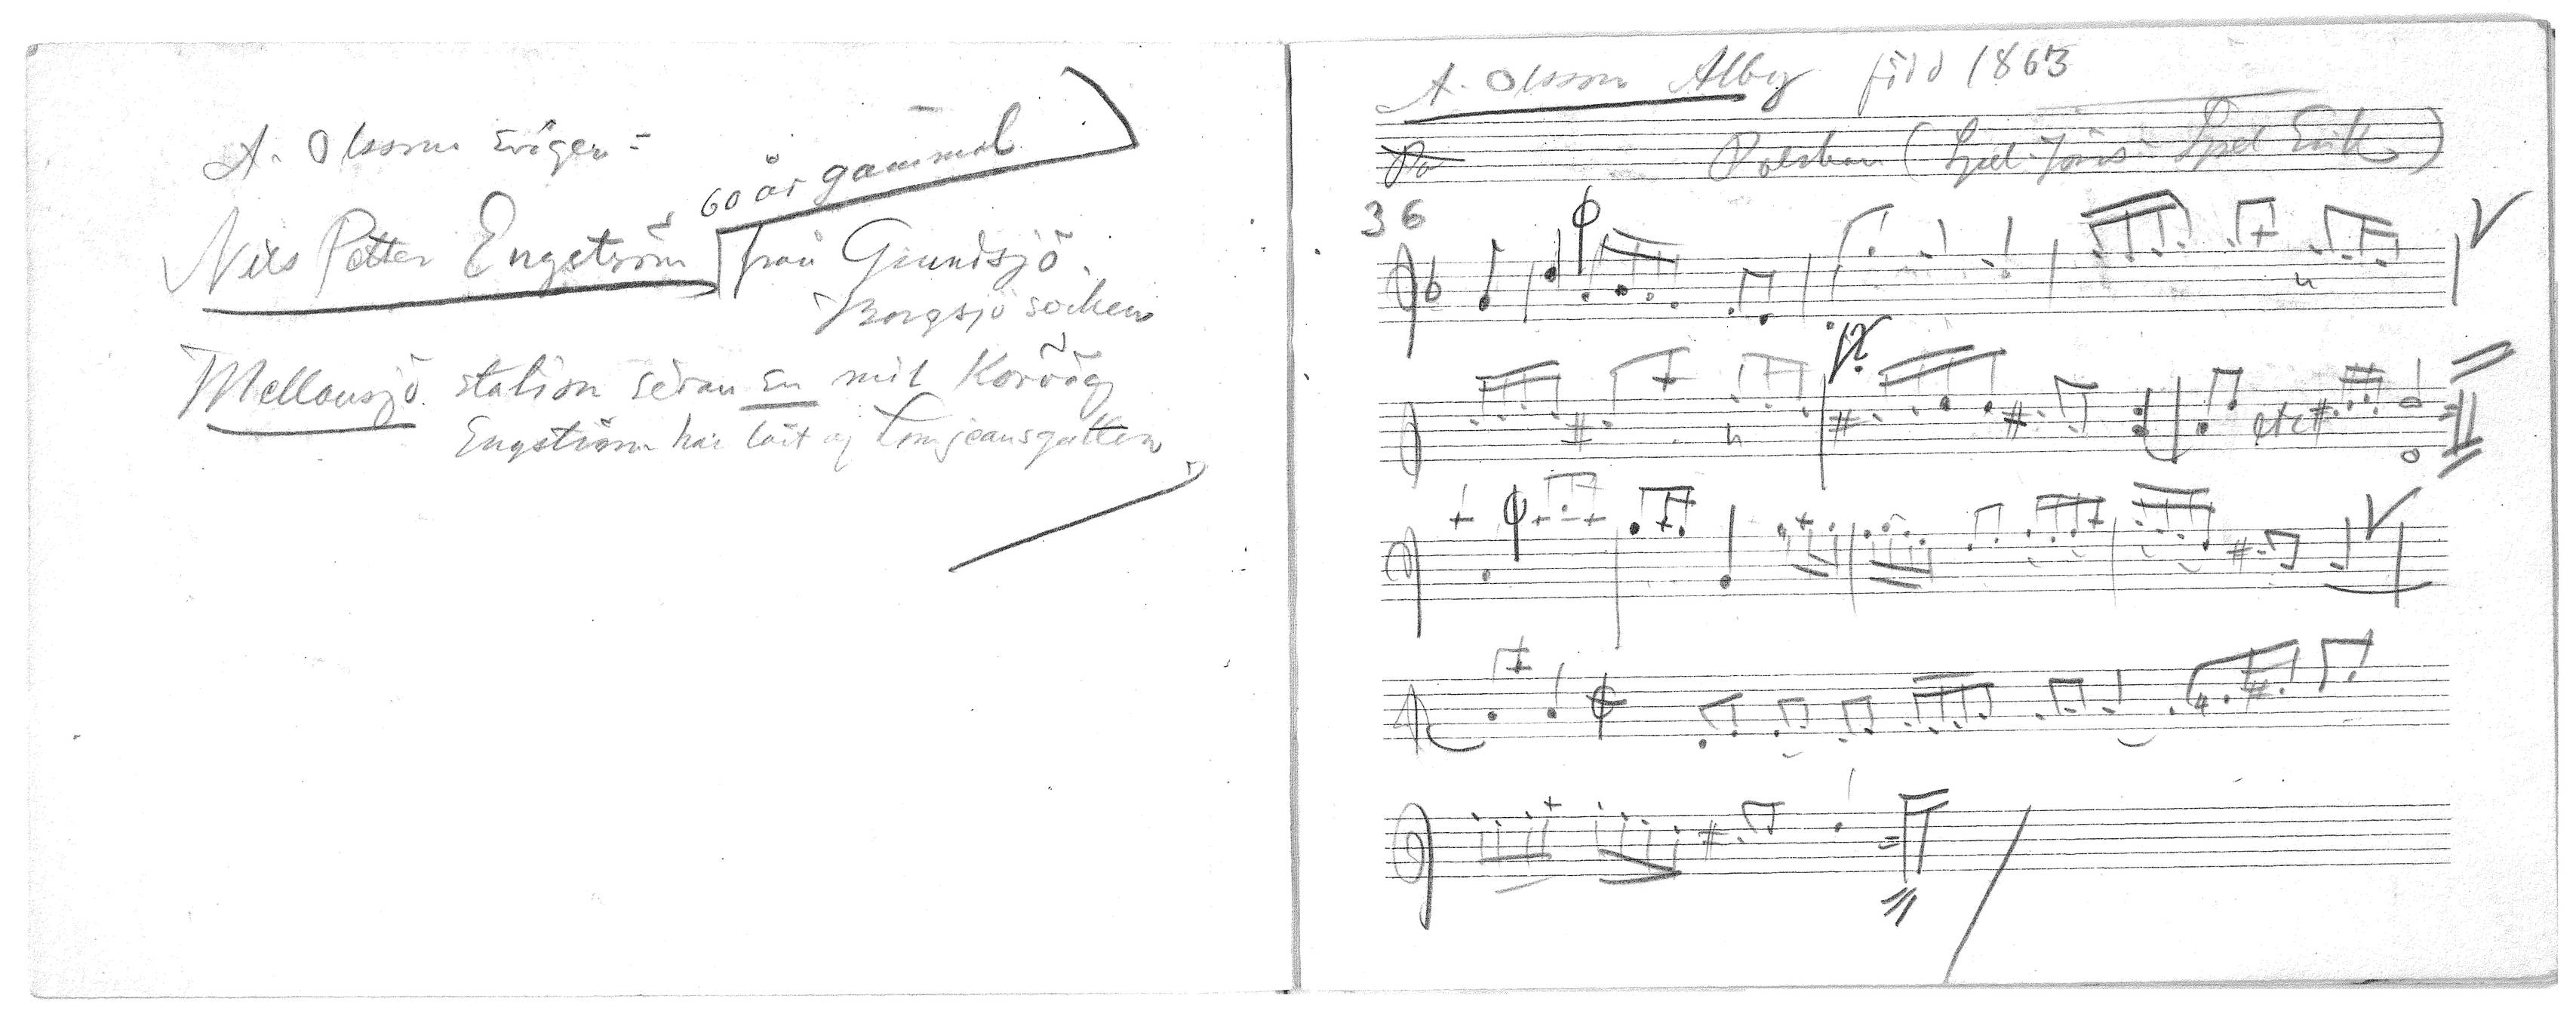 A. Olsson Svägen =
60 år gammal
Nils Petter Engström från Grundsjö.
Borgsjö socken
Mellansjö station sedan en mil
Engström har lärt af
A. Olsson Alby född 1863
Po
Polskan (Spel-Jöns Spel Erik)
36
etc